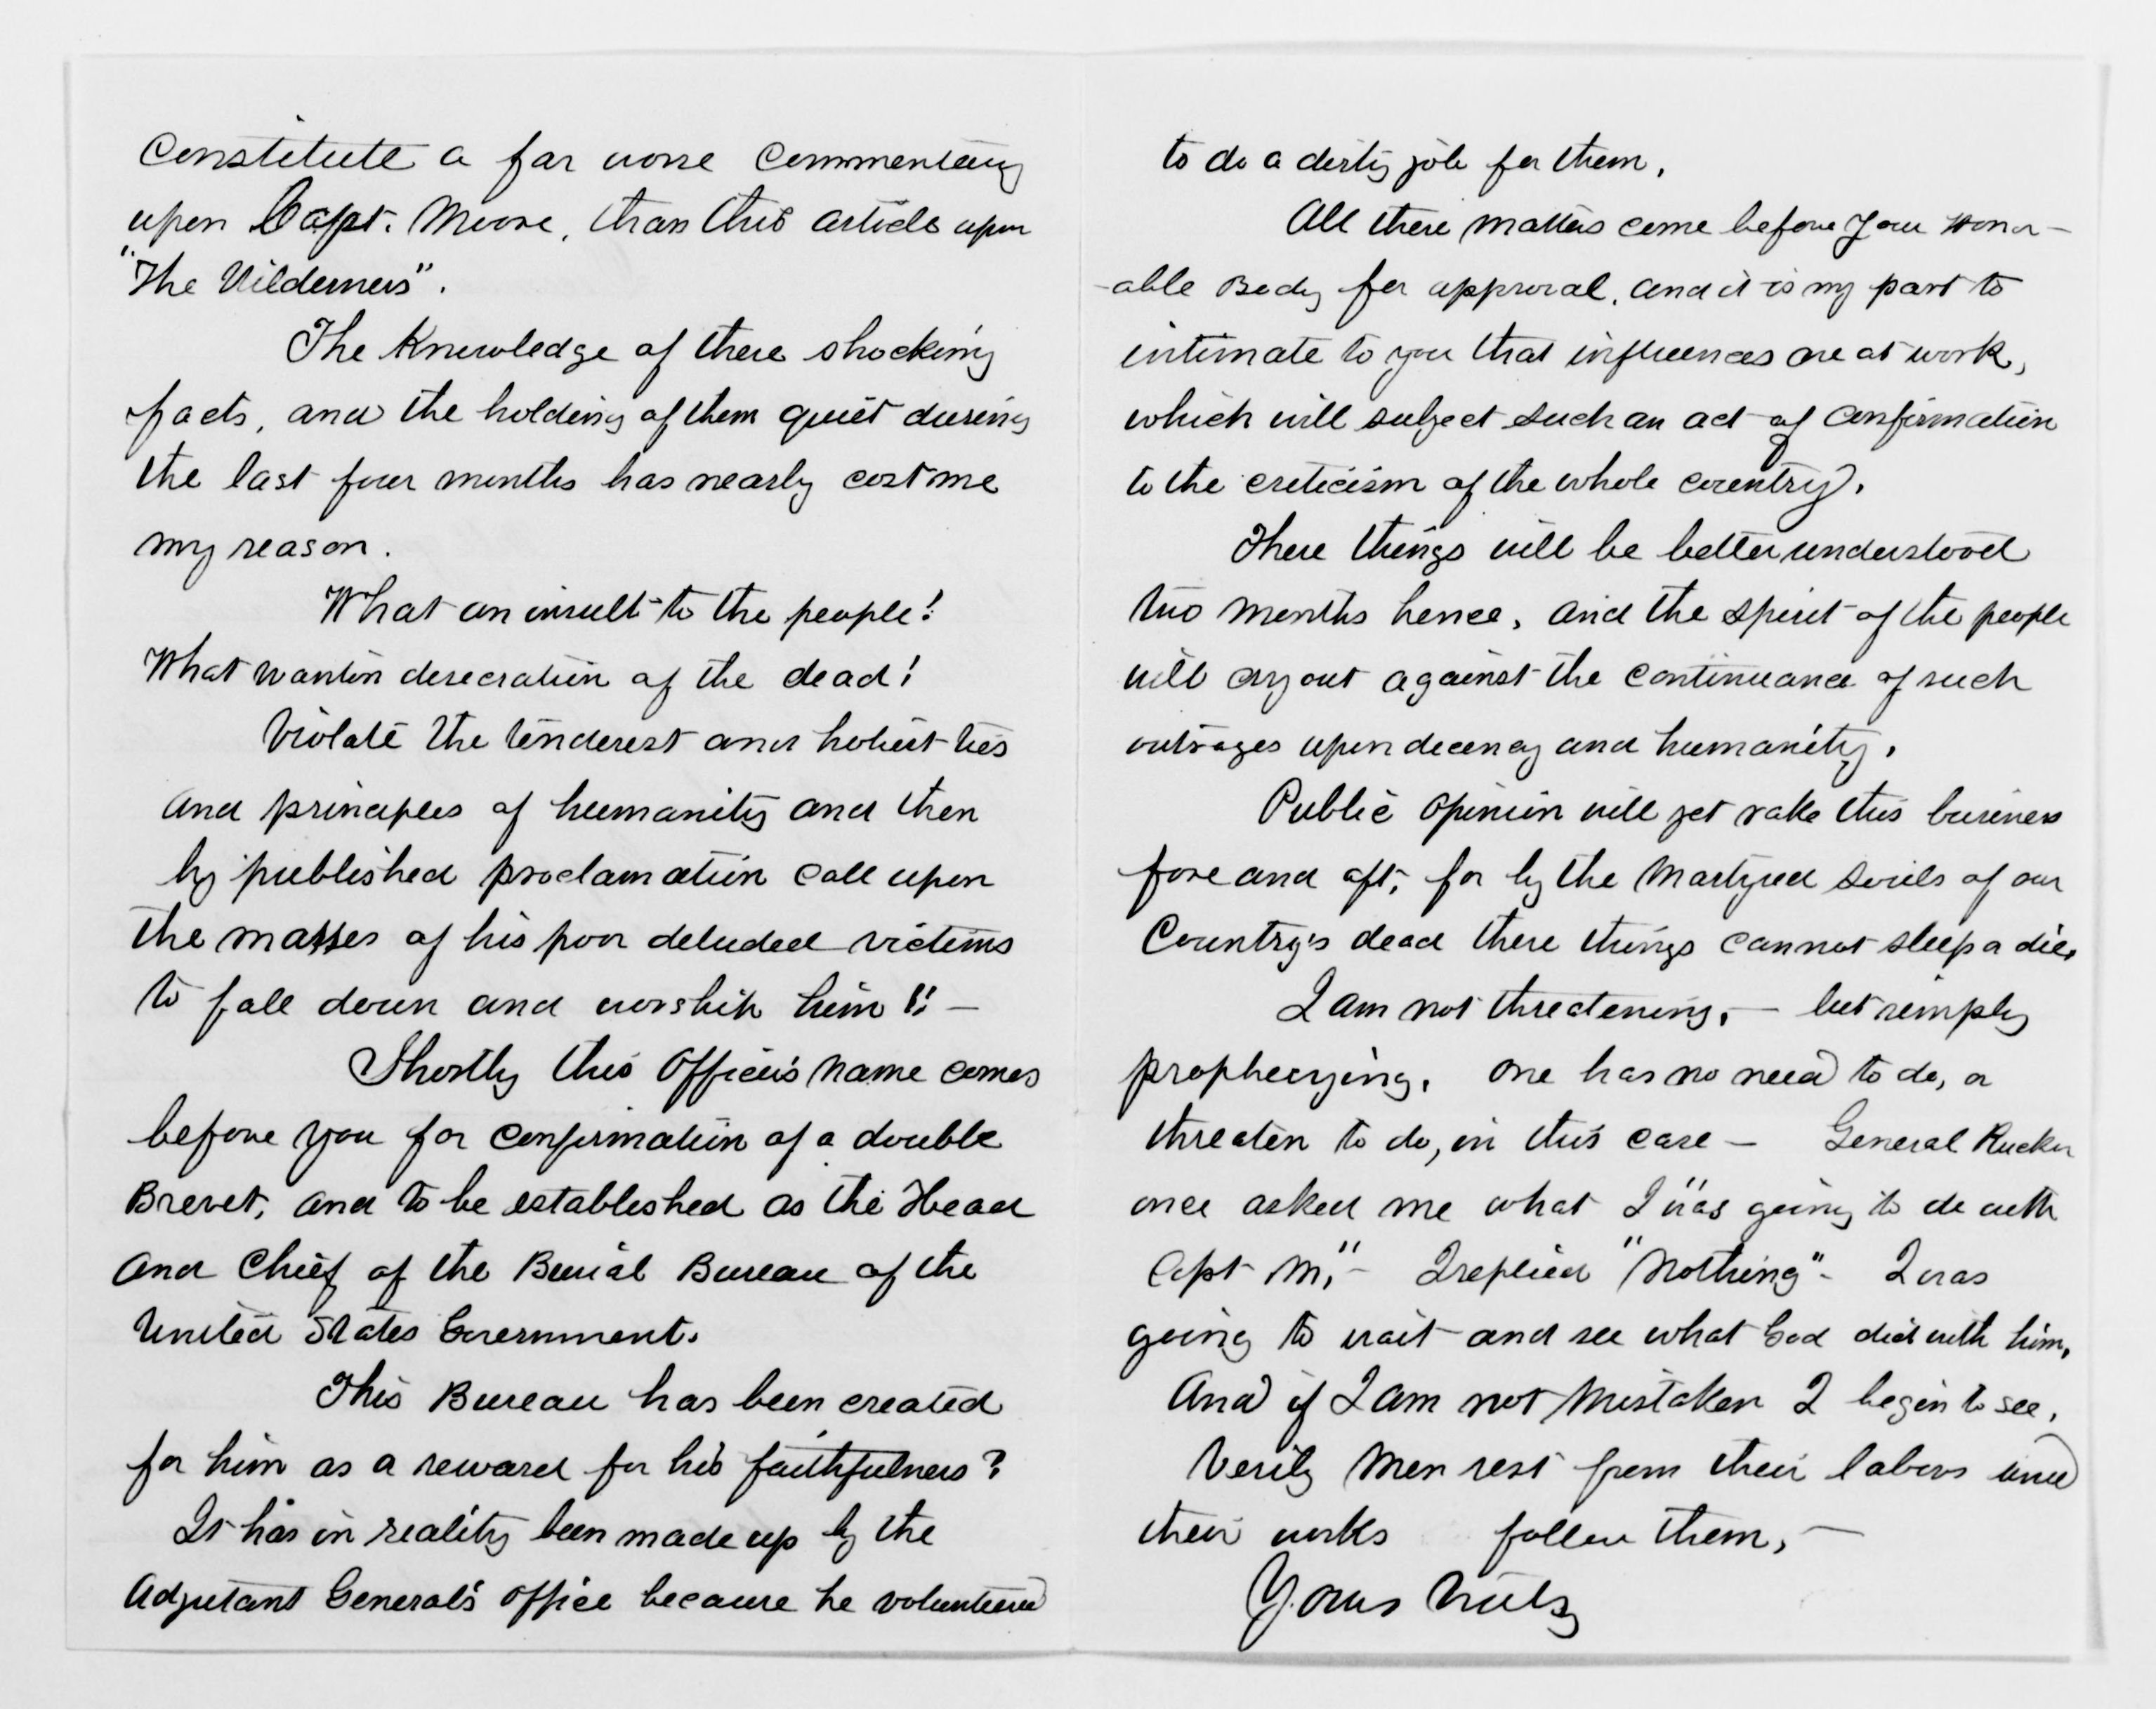 Constitute a far worse Commentary
upon Capt. Moore, than this article upon
"The Wilderness".
The Knowledge of these shocking
facts, and the holding of them quiet during
the last four months has nearly cost me
my reason.
What an insult to the people!
What wanton desecration of the dead!
Violate the tenderest and holiest ties
and principles of humanity and then
by published proclamation call upon
the masses of his poor deluded victims
to fall down and worship him!! —
Shortly this Officer's name comes
before you for confirmation of a double
Brevet, and to be established as the Head
and Chief of the Burial Bureau of the
United States Government.
This Bureau has been created
for him as a reward for his faithfulness?
It has in reality been made up by the
Adjutant General's office because he volunteered
to do a dirty job for them.
All these matters come before your Honor-
-able Body for approval, and it is my part to
intimate to you that influences are at work,
which will subject such an act of confirmation
to the criticism of the whole country.
These things will be better understood
two months hence, and the spirit of the people
will cry out against the continuance of such
outrages upon decency and humanity.
Public opinion will yet rake this business
fore and aft, for by the Martyred souls of our
Country's dead these things cannot sleep or die.
I am not threatening, — but simply
prophecying. One has no need to do, or
threaten to do, in this case — General Rucker
once asked me what I "was going to do with
Capt M," – I replied "Nothing" – I was
going to wait and see what God did with him.
And if I am not Mistaken I begin to see.
Verily Men rest from their labors and
their works follow them, —
Yours Truly